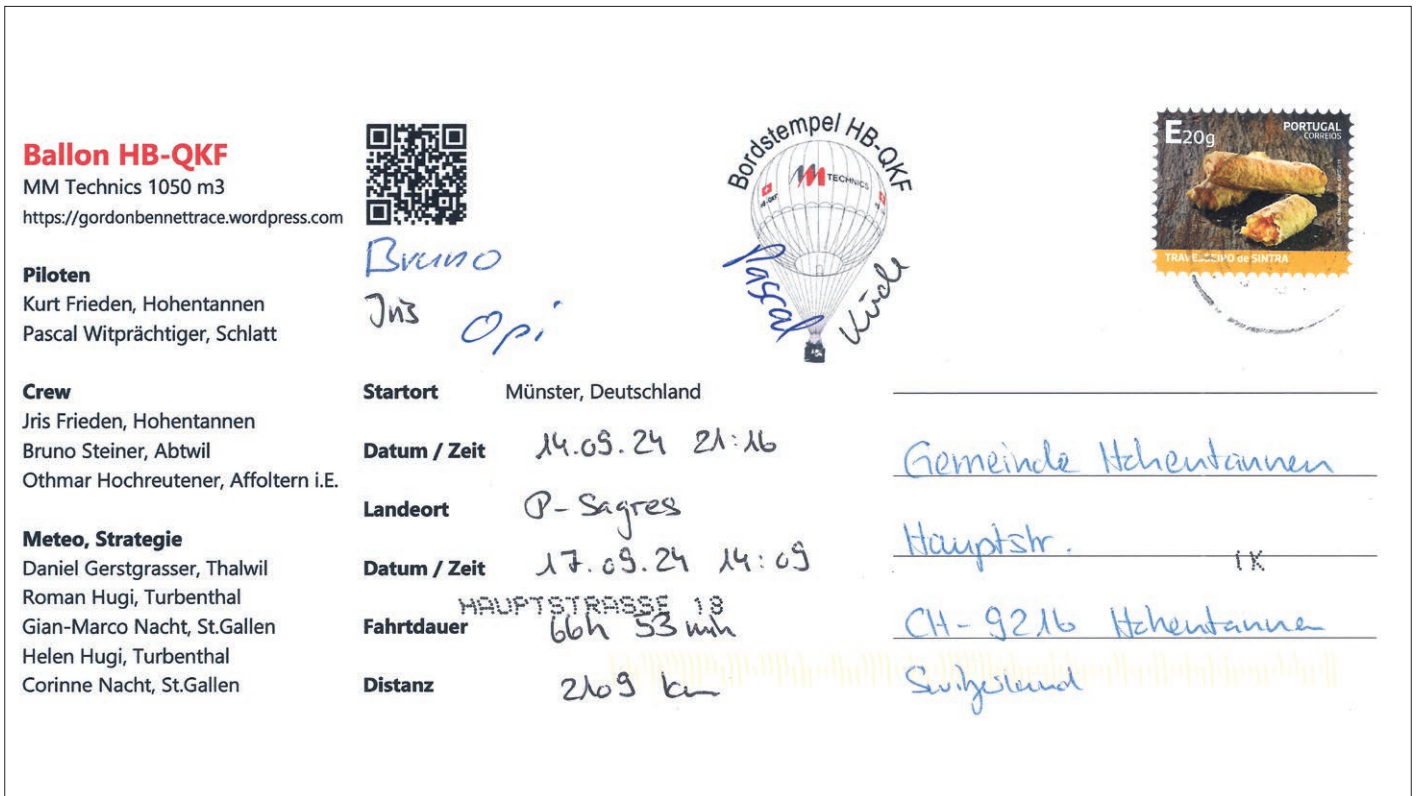 Ballon HB-QKF
MM Technics 1050 m3
https://gordonbennettrace.wordpress.com
Piloten
Kurt Frieden, Hohentannen
Pascal Witprächtiger, Schlatt
Crew
Jris Frieden, Hohentannen
Bruno Steiner, Abtwil
Othmar Hochreutener, Affoltern i.E.
Meteo, Strategie
Daniel Gerstgrasser, Thalwil
Roman Hugi, Turbenthal
Gian-Marco Nacht, St.Gallen
Helen Hugi, Turbenthal
Corinne Nacht, St.Gallen
Bruno
Jris
Opi
Bordstempel HB-QKF
MM TECHNICS
HB-QKF
Pascal
E20g
PORTUGAL
CORREIOS
TRAVESSEIRO de SINTRA
Startort Münster, Deutschland
Datum / Zeit 14.09.24 21:16
Landeort P-Sagres
Datum / Zeit 17.09.24 14:09
HAUPTSTRASSE 18
Fahrtdauer 66h 53 min
Distanz 2109 km
Gemeinde Hohentannen
Hauptstr.
1K
CH-9216 Hohentannen
Switzerland